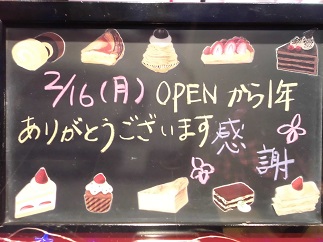 2/16(月) OPENから1年
ありがとうございます感謝